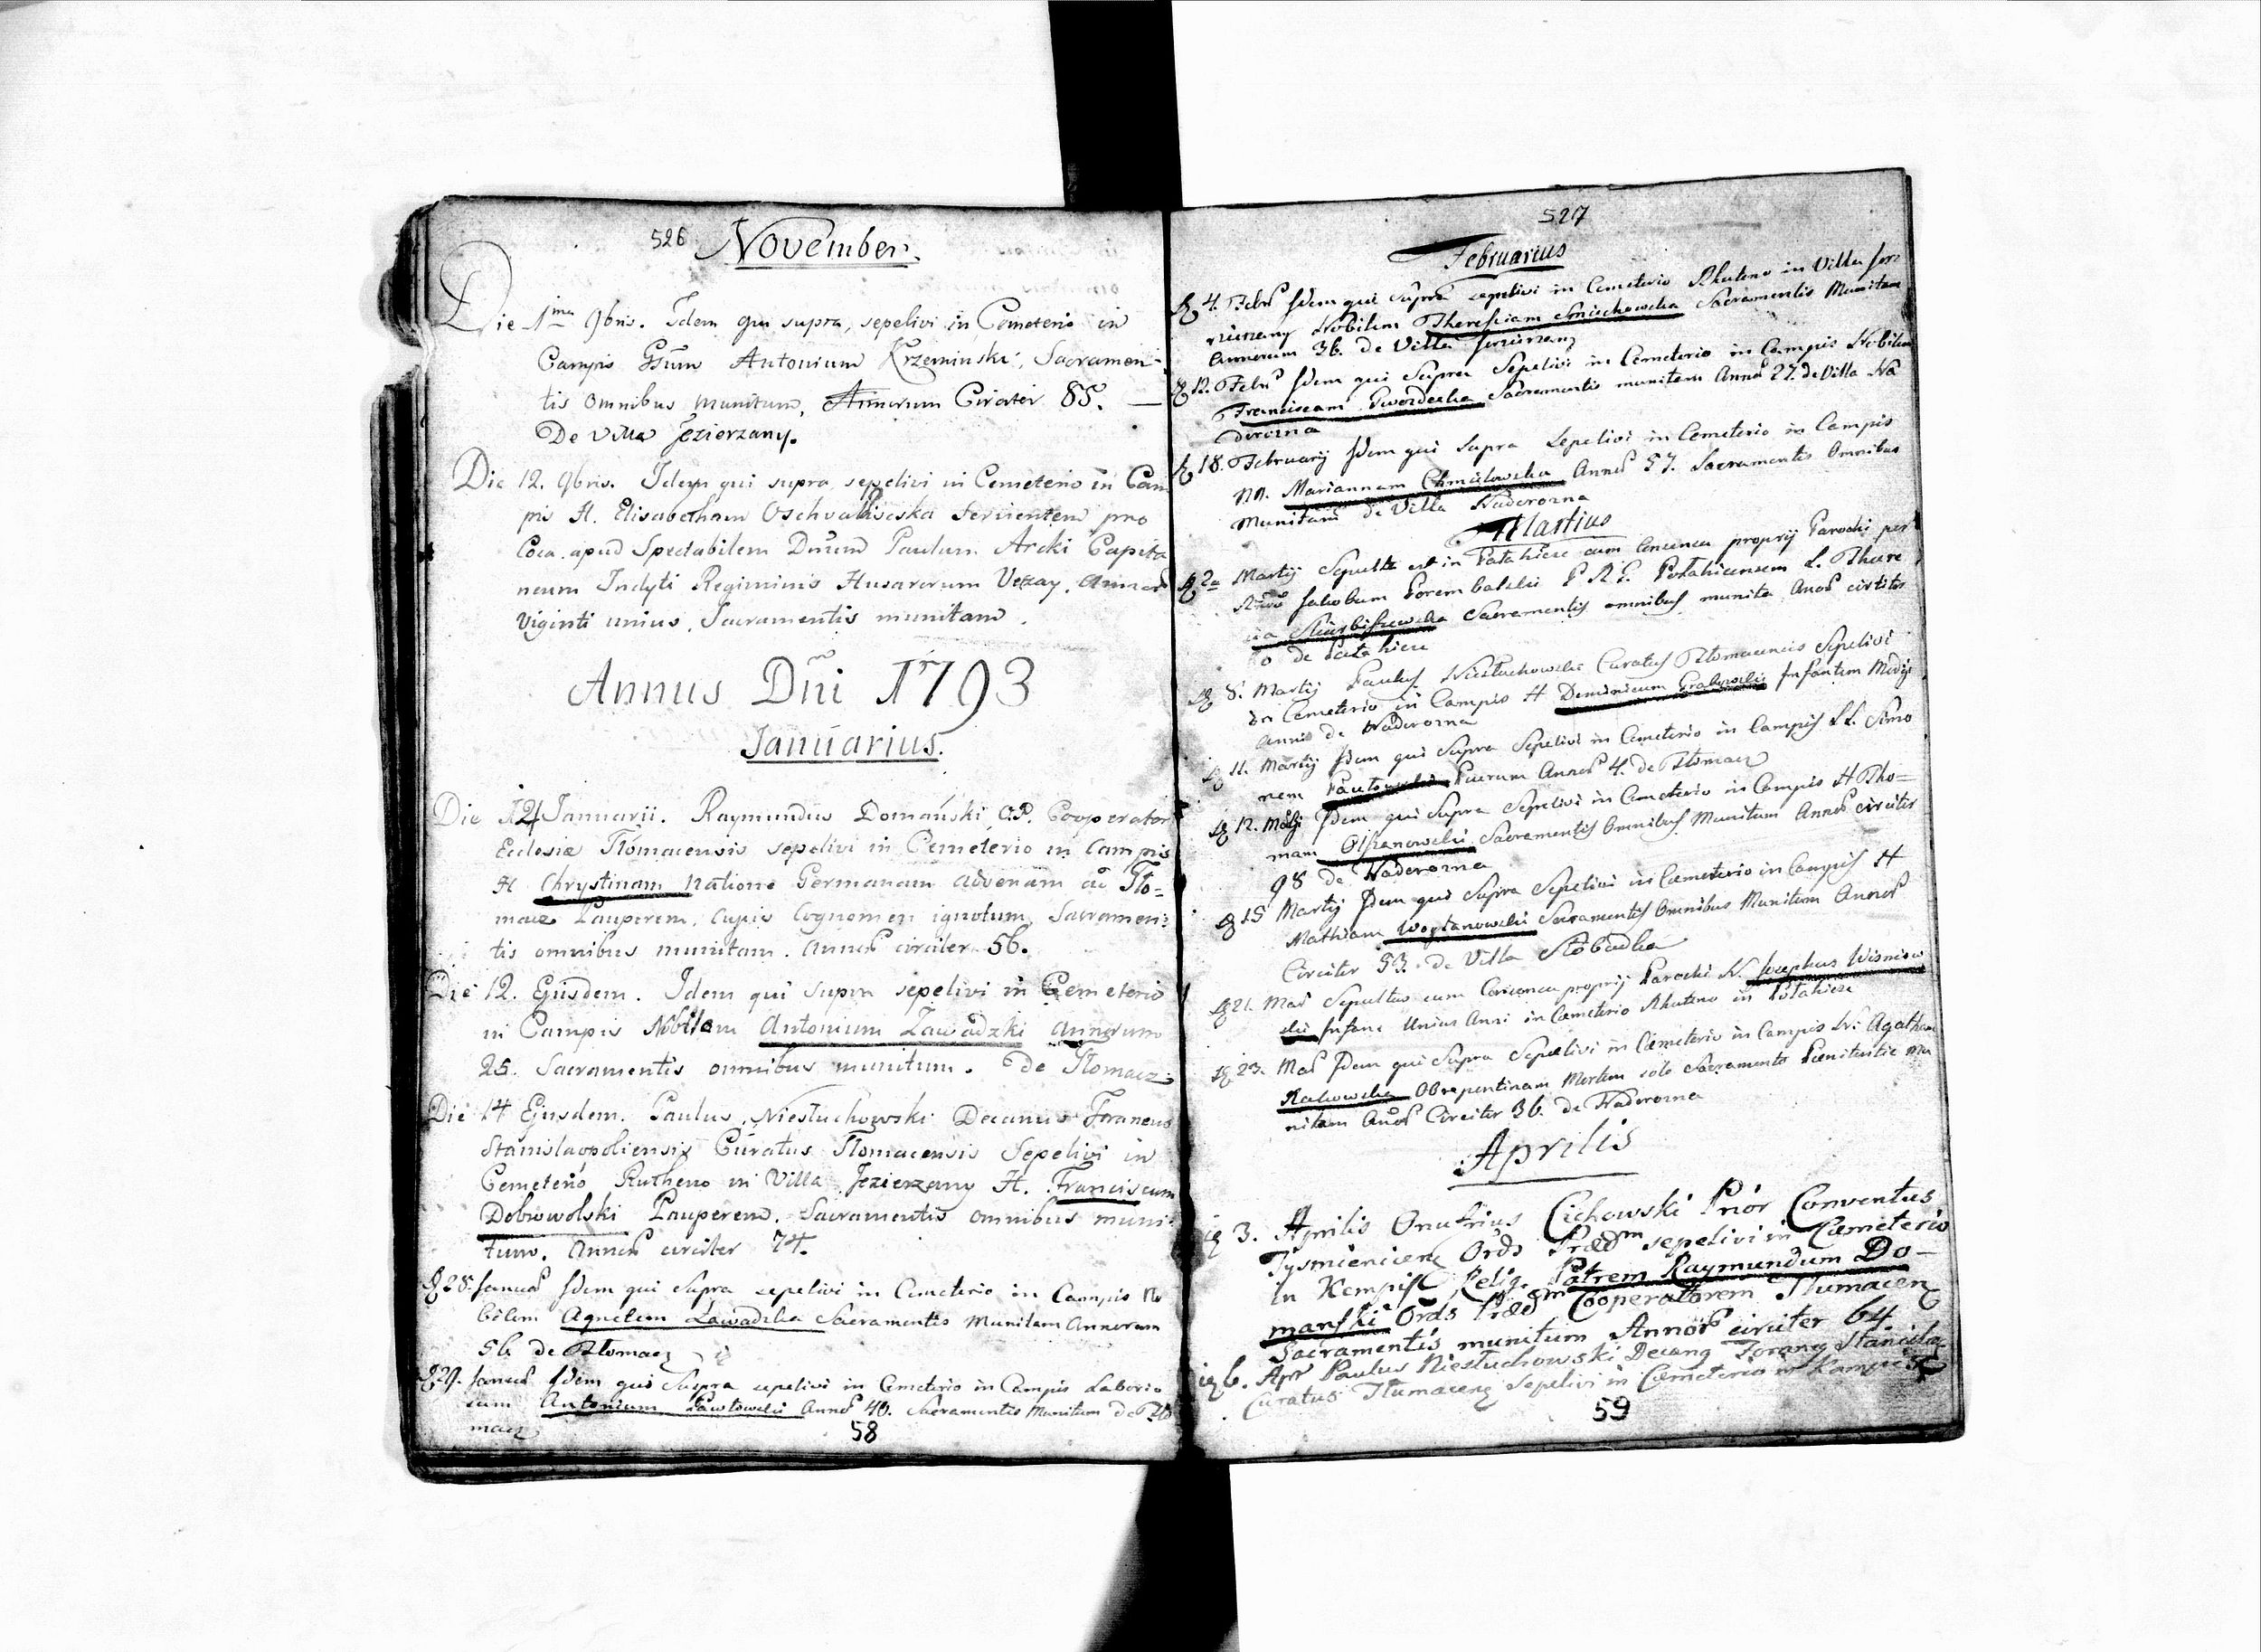 526 November.
Die 1ma 9bris. Idem qui supra, sepelivi in Cemeterio in
Campis Gsum Antonium Krzeminski, Sacramen-
tis omnibus munitum, Annorum Circiter 85. —
De Villa Jezierzany.
Die 12. 9bris. Idem qui supra sepelivi in Cemeterio in Cam
pis H. Elisabetham servientem pro
Coca apud Spectabilem Dnum Paulum Arcki Capita
neum Indyti Regiminis Husarorum Vezay, Annor
Viginti unius, Sacramentis munitam.
Annus Dni 1793
Januarius.
Die 12 Januarii. Raymundus Domański O.P. Cooperator
Ecclesiæ Tłomacensis sepelivi in Cemeterio in Campis
H Chrystinam natione Germanam advenam ad Tło=
macz Pauperem, Cujus Cognomen ignotum, Sacramen=
tis omnibus munitam. Annor circiter 56.
Die 12. Ejusdem. Idem qui supra sepelivi in Cemeterio
in Campis Nobilem Antonium Zawadzki annorum
25. Sacramentis omnibus munitum. De Tłomacz
Die 14 Ejusdem. Paulus Niesłuchowski Decanus Foraneus
Stanislaopoliensis Curatus Tłomacensis Sepelivi in
Cemeterio Rutheno in Villa Jezierzany H. Franciscum
Dobrowolski Pauperem. Sacramentis omnibus muni=
tum. Annor circiter 74.
28. Januar Idem qui Supra sepelivi in Cemeterio in Campis No
bilem Agnetem Zawadzka Sacramentis Munitam Annorum
56 de Tłomacz
29. Januar Idem qui Supra sepelivi in Cemeterio in Campis Laborio
sum Antonium Pawłowski Annor 40. Sacramentis Munitum de Tło
macz
58
527
Februarius
4. Febr Idem qui supra sepelivi in Cemeterio Rhuteno in Villa Jez
ierzany Nobilem Theresiam Smiechowska Sacramentis Munitam
Annorum 36. de Villa Jezierzany
12. Febr Idem qui Supra Sepelivi in Cemeterio in Campis Nobilem
Franciscam Gwozdecka Sacramentis munitam Annor 27. de Villa Na
dorozna
18. Februarij Idem qui Supra Sepelivi in Cemeterio in Campis
Mariannam Chmielowska Annor 57. Sacramentis Omnibus
Munitam de Villa Nadorozna
Martius
2a Martij Sepulta est in Patahicze cum Consensu proprij Parochi per
Jakobum Porembalski Potahicensem L. There
sia Sacramentis omnibus munita Anor circiter
de Patahicze
8. Martij Paulus Niesłuchowski Curatus Tłomacensis Sepelivi
in Cemeterio in Campis H Dominicum Grabowski Infantem Medij
Anni de Nadorozna
11. Martij Idem qui Supra Sepelivi in Cemeterio in Campis LL. Simo
nem Pawłowski Puerum Annor 4. de Tłomacz
12. Martij Idem qui Supra Sepelivi in Cemeterio in Campis H Tho=
mam Olszanowski Sacramentis Omnibus Munitum Annor circiter
98 de Nadorozna
15 Martij Idem qui Supra Sepelivi in Cæmeterio in Campis H
Mathiam Woytanowski Sacramentis Omnibus Munitum Annor
Circiter 53. de Villa Słobudka
21. Mar Sepultus cum Consensu proprij Parochi N. Josephus Wisniew
ski Infans Unius Anni in Cæmeterio Rhuteno in Potahicze
23. Mar Idem qui Supra Sepelivi in Cæmeterio in Campis N. Agatham
Rakowska Obrepentinam Mortem solo Sacramento Pænitentiæ Mu
nitam Anor Circiter 36. de Nadorozna
Aprilis
3. Aprilis Onufrius Cichowski Prior Conventus
Tysmienicen Ords Prædm sepelivi in Cæmeterio
in Kempist Relig. Patrem Raymundum Do-
mański Ords Prædm Cooperatorem Tłumacen
Sacramentis munitum Annor circiter 64.
6. Apr Paulus Niesłuchowski Decang Forang Stanisla
Curatus Tłumaceng Sepelivi in Cæmeterio in Kempist
59